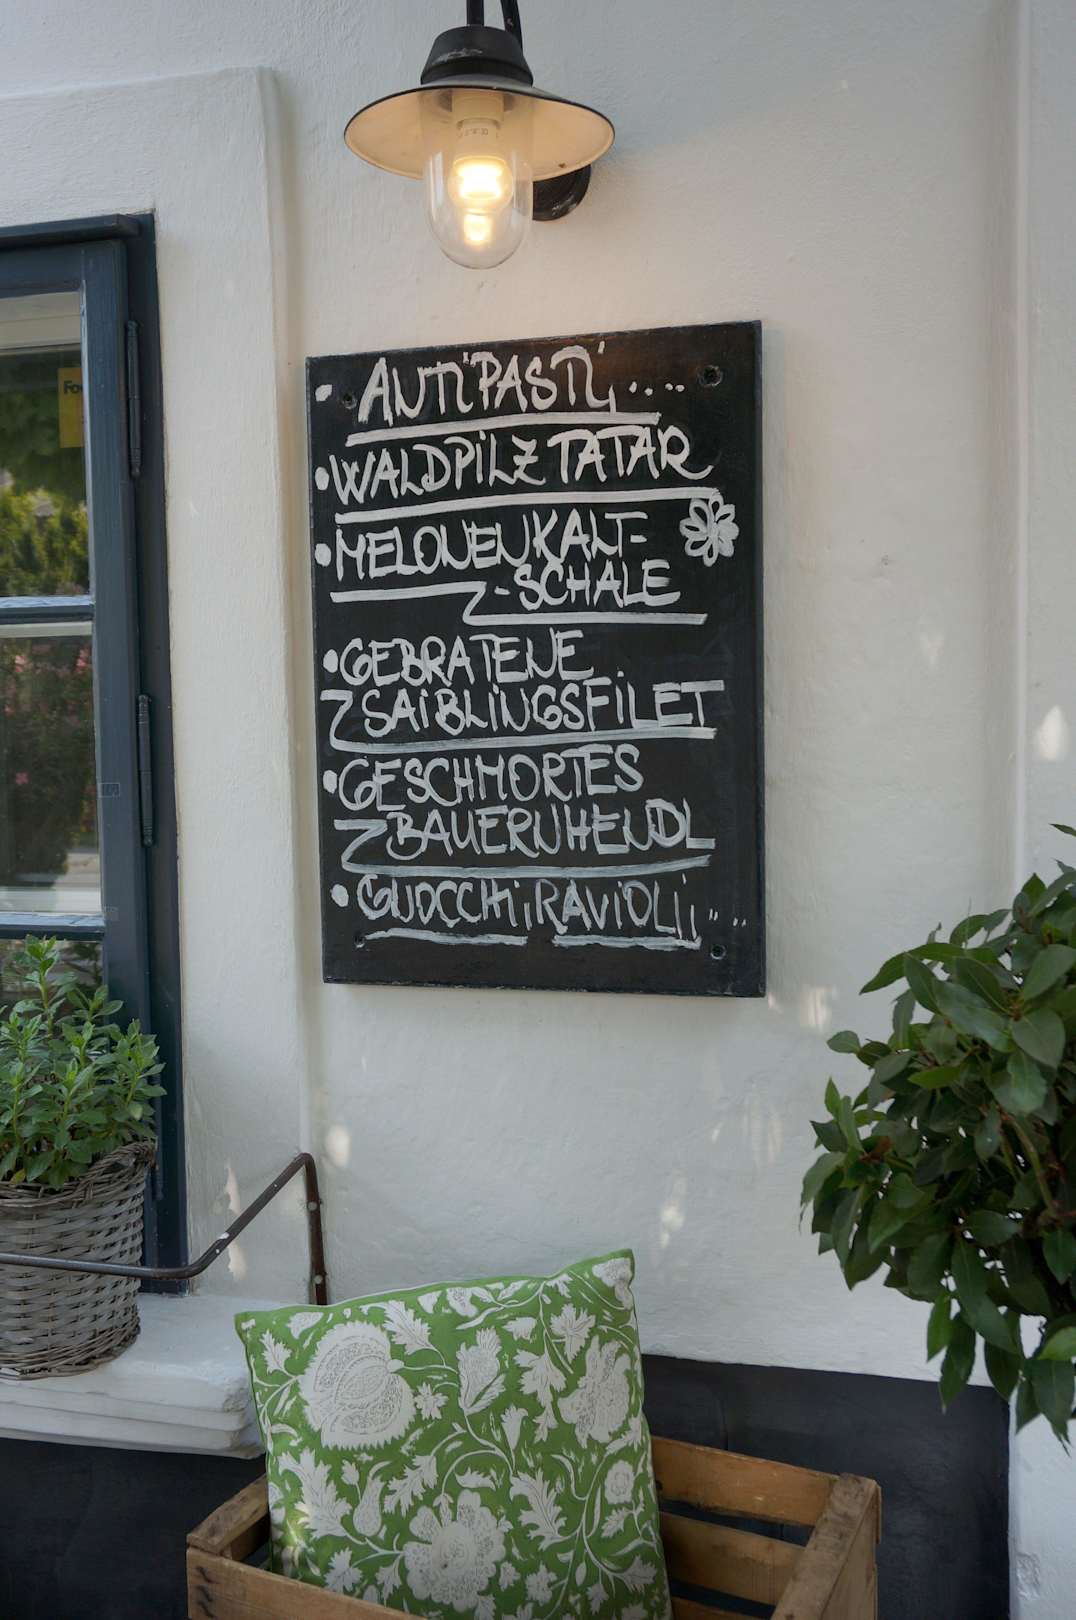 • ANTIPASTI,....
• WALDPILZTATAR
• MELONENKALT-
-SCHALE
• GEBRATENE
SAIBLINGSFILET
• GESCHMORTES
BAUERNHENDL
• GNOCCHI, RAVIOLI, ....